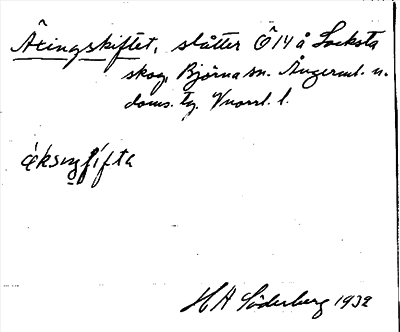 Äxingskiftet, slåtter Ö 14 å Locksta
skog, Björna sn. Ångerml. n.
doms. tg. Vnorrl. l.
ä́ksiŋʃifta
H A Söderberg 1932